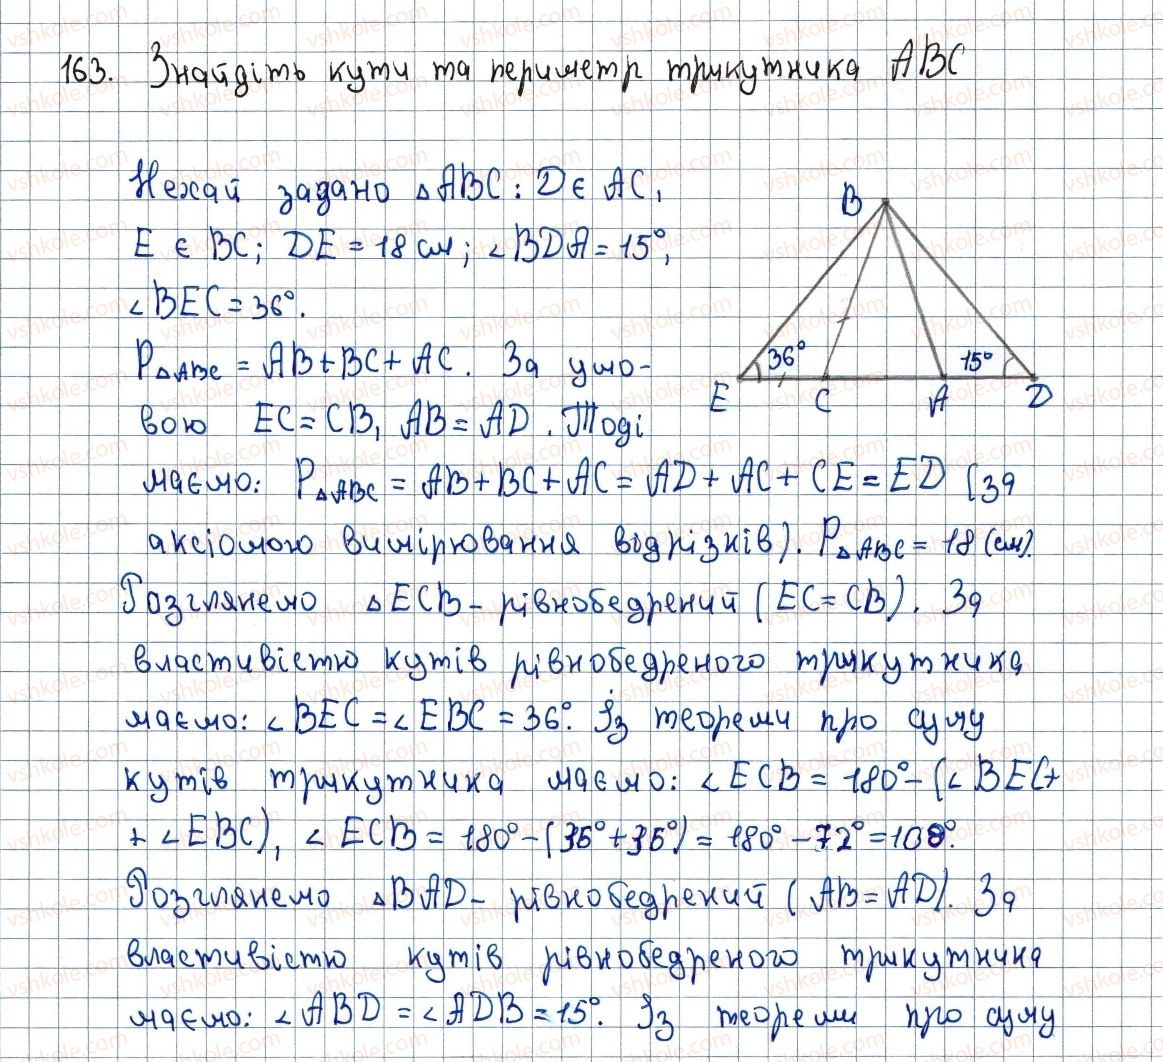 163. Знайдіть кути та периметр трикутника ABC
Нехай задано △ABC: D є AC,
E є BC; DE = 18 см; ∠BDA = 15°,
∠BEC = 36°.
P△ABC = AB + BC + AC. За умо-
вою EC = CB, AB = AD. Тоді
маємо: P△ABC = AB + BC + AC = AD + AC + CE = ED (за
аксіомою вимірювання відрізків). P△ABC = 18 (см).
Розглянемо △ECB - рівнобедрений (EC = CB). За
властивістю кутів рівнобедреного трикутника
маємо: ∠BEC = ∠EBC = 36°. Із теореми про суму
кутів трикутника маємо: ∠ECB = 180° - (∠BEC +
+ ∠EBC), ∠ECB = 180° - (36° + 36°) = 180° - 72° = 108°.
Розглянемо △BAD - рівнобедрений (AB = AD). За
властивістю кутів рівнобедреного трикутника
маємо: ∠ABD = ∠ADB = 15°. Із теореми про суму
B
36°
15°
E
C
A
D
vshkole.com